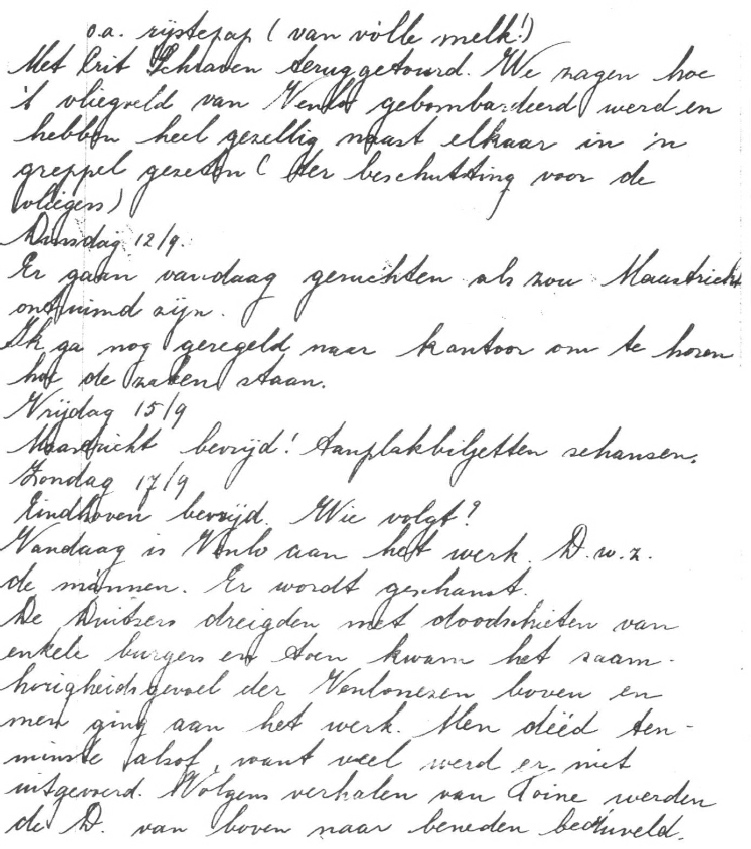 o.a. rijstepap (van vòlle melk!)
Met Crit Schraven teruggetourd. We zagen hoe
't vliegveld van Venlo gebombardeerd werd en
hebben heel gezellig naast elkaar in 'n
greppel gezeten (ter beschutting voor de
vliegers)
Dinsdag 12/9.
Er gaan vandaag geruchten als zou Maastricht
ontruimd zijn.
Ik ga nog geregeld naar kantoor om te horen
hoe de zaken staan.
Vrijdag 15/9
Maastricht bevrijd! Aanplakbiljetten schansen.
Zondag 17/9
Eindhoven bevrijd. Wie volgt?
Vandaag is Venlo aan het werk. D.w.z.
de mannen. Er wordt geschanst.
De Duitsers dreigden met doodschieten van
enkele burgers en toen kwam het saam-
horigheidsgevoel der Venlonezen boven en
men ging aan het werk. Men dééd ten-
minste alsof, want veel werd er niet
uitgevoerd. Volgens verhalen van Toine werden
de D. van boven naar beneden beduveld.